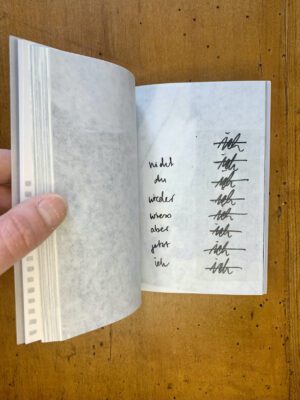 ich
nicht ich
du ich
wieder ich
wieso ich
aber ich
jetzt ich
ich ich